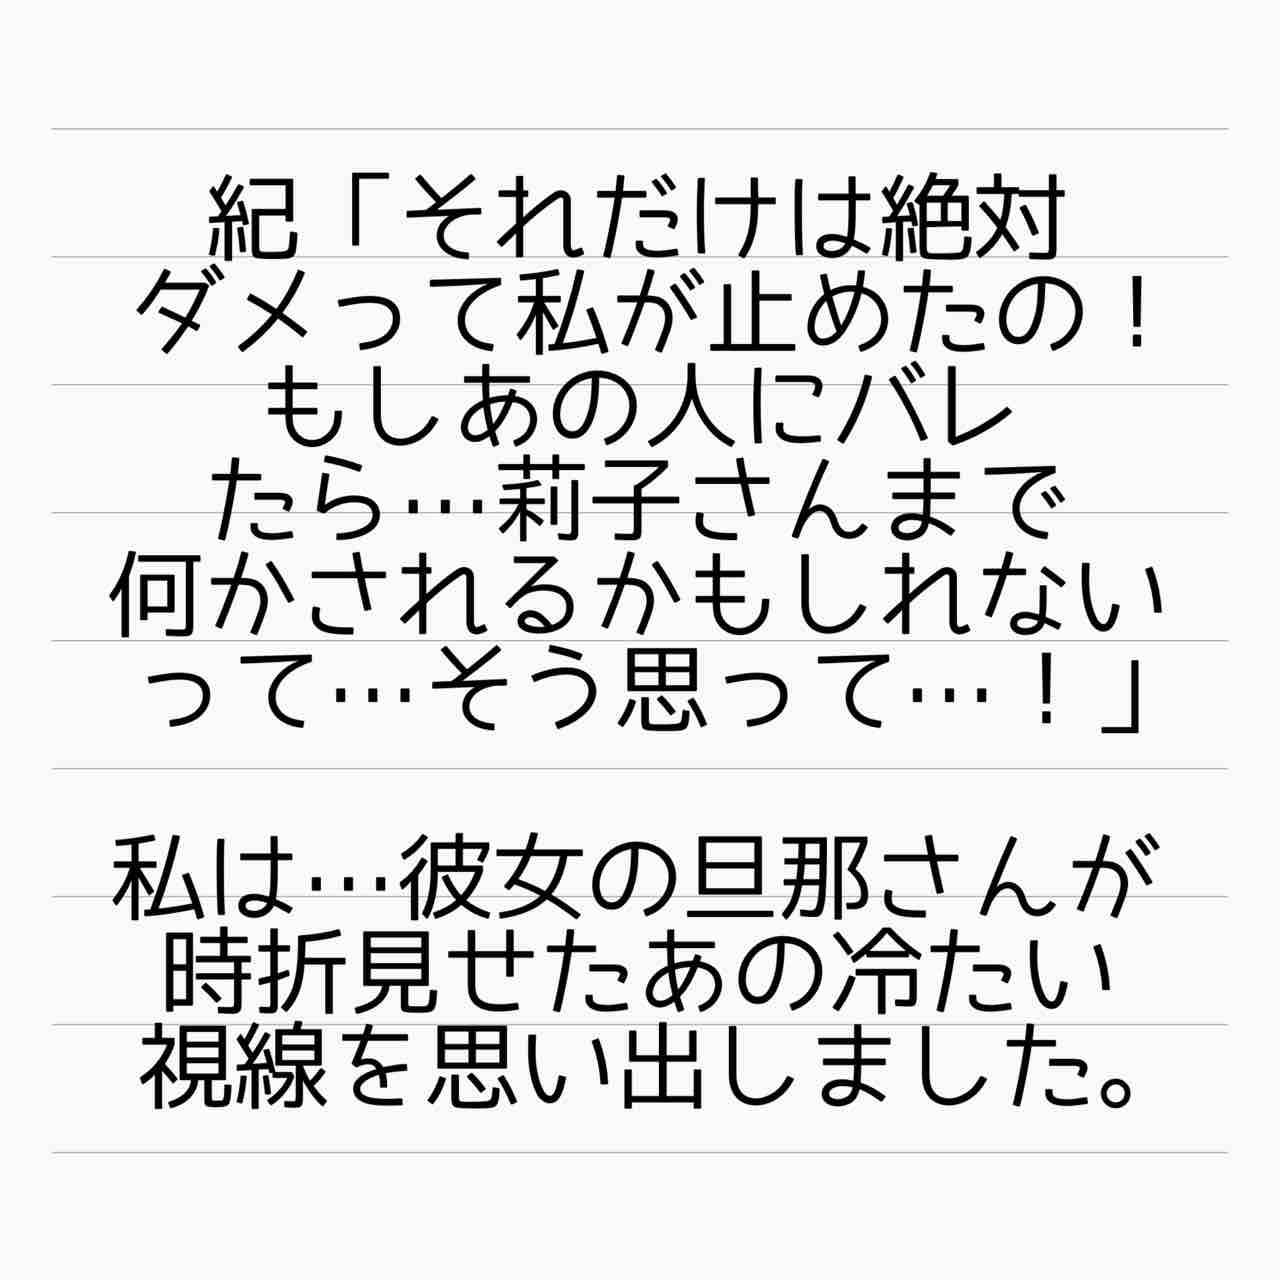 紀「それだけは絶対
ダメって私が止めたの！
もしあの人にバレ
たら…莉子さんまで
何かされるかもしれない
って…そう思って…！」
私は…彼女の旦那さんが
時折見せたあの冷たい
視線を思い出しました。